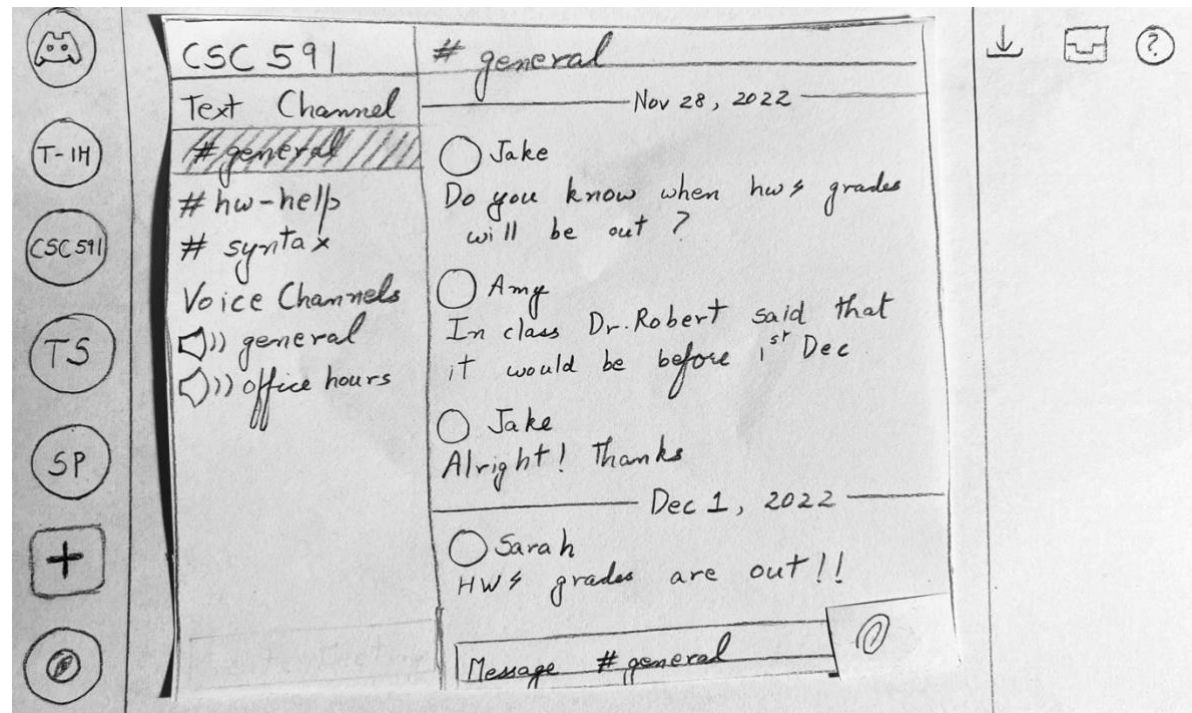 CSC 591
Text Channel
# general
# hw-help
# syntax
Voice Channels
general
office hours
# general
Nov 28, 2022
Jake
Do you know when grades
will be out ?
Amy
In class Dr. Robert said that
it would be before 1st Dec
Jake
Alright! Thanks
Dec 1, 2022
Sarah
grades are out!!
Message # general
T-1H
CSC 591
TS
SP
+
?